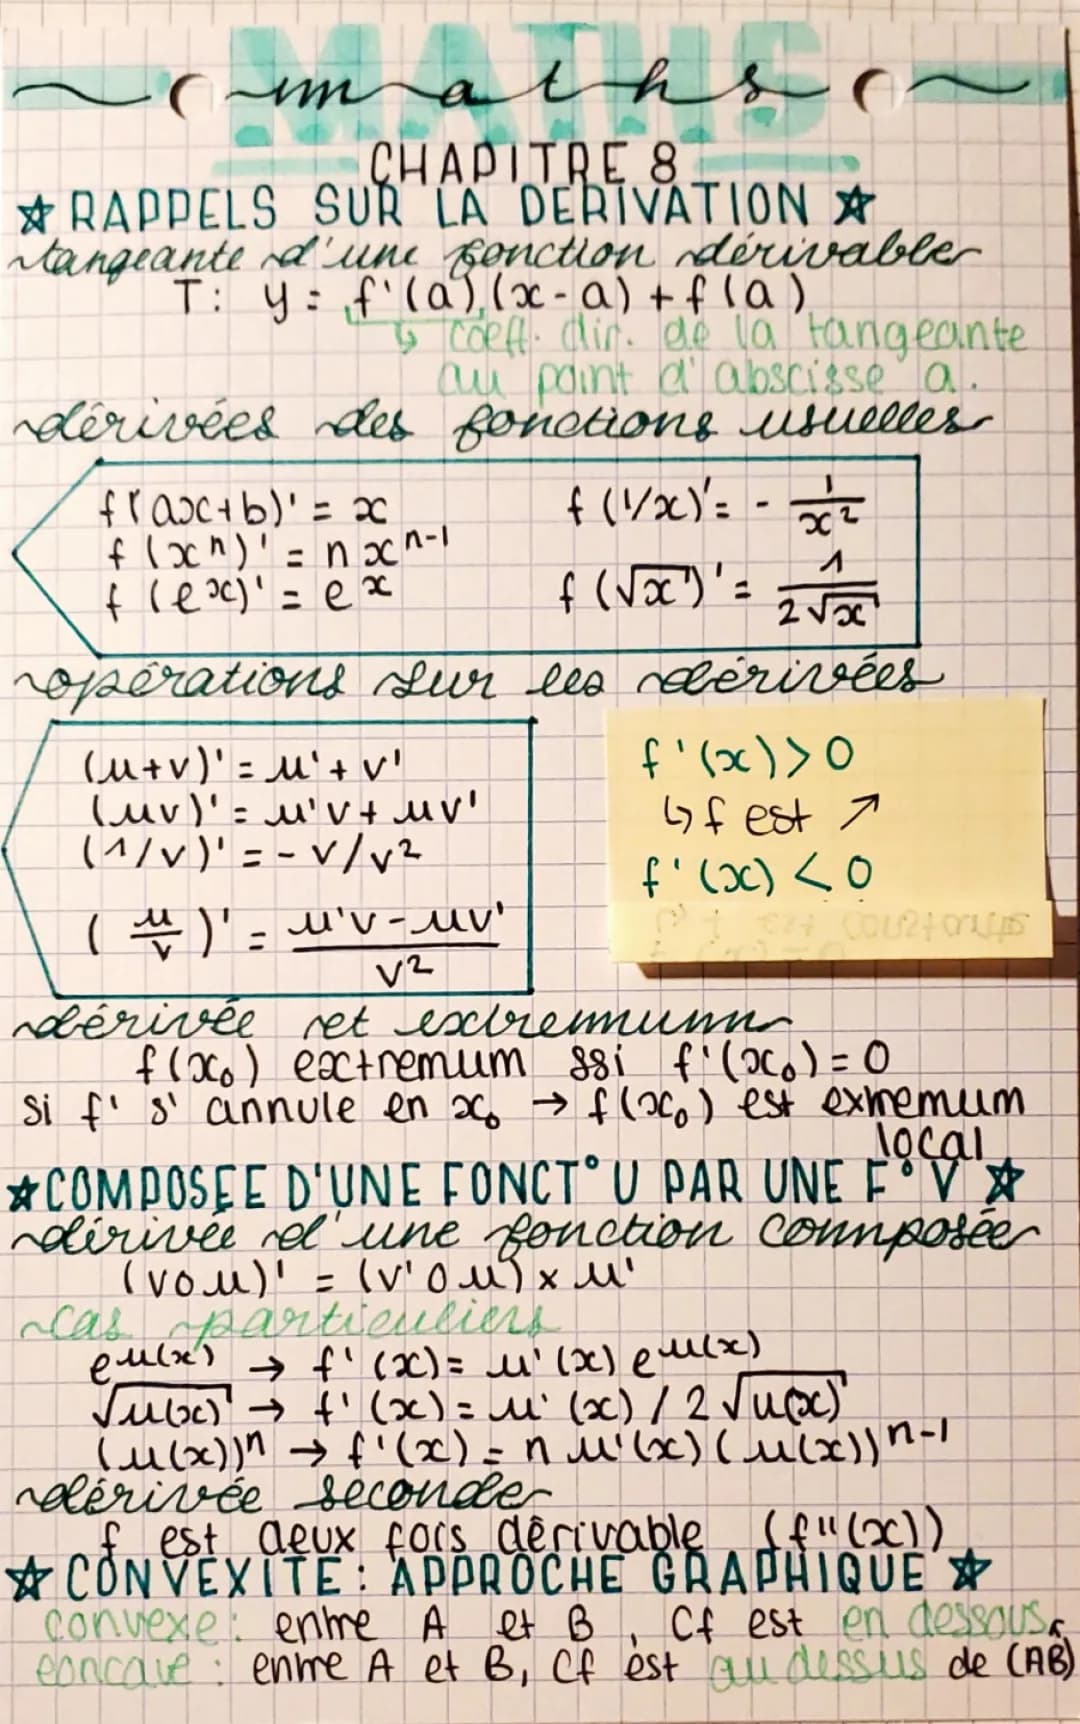 MATHS
maths
CHAPITRE 8
☆ RAPPELS SUR LA DERIVATION ☆
tangeante d'une fonction dérivable
T: y = f'(a)(x-a) + f(a)
↳ coeff. dir. de la tangeante
au point d'abscisse a.
dérivées des fonctions usuelles
f(ax+b)' = x
f(xⁿ)' = nxⁿ⁻¹
f(eˣ)' = eˣ
f(1/x)' = - 1/x²
f(√x)' = 1/2√x
opérations sur les dérivées
(u+v)' = u' + v'
(uv)' = u'v + uv'
(1/v)' = - v/v²
(u/v)' = u'v - uv' / v²
f'(x) > 0
↳ f est ↗
f'(x) < 0
dérivée et extremumm
f(x₀) extremum ssi f'(x₀) = 0
si f' s'annule en x₀ → f(x₀) est extremum
local
☆ COMPOSEE D'UNE FONCT° U PAR UNE F° V ☆
dérivée d'une fonction composée
(vou)' = (v'ou) x u'
cas particuliers
eᵘ⁽ˣ⁾ → f'(x) = u'(x) eᵘ⁽ˣ⁾
√u(x) → f'(x) = u'(x) / 2√u(x)
(u(x))ⁿ → f'(x) = n u'(x) (u(x))ⁿ⁻¹
dérivée seconde
f est deux fois dérivable (f''(x))
☆ CONVEXITE : APPROCHE GRAPHIQUE ☆
convexe : entre A et B, Cf est en dessous
concave : entre A et B, Cf est au dessus de (AB)